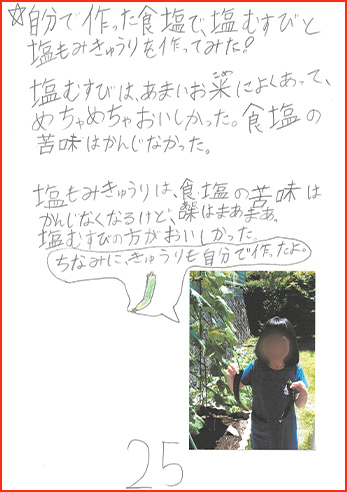 ☆自分で作った食塩で、塩むすびと
塩もみきゅうりを作ってみた!
塩むすびは、あまいおによくあって、
めちゃめちゃおいしかった。食塩の
苦味はかんじなかった。
塩もみきゅうりは、食塩の苦味は
かんじなくなるけど、はまあまあ。
塩むすびの方がおいしかった。
ちなみに、きゅうりも自分で作ったよ。
25